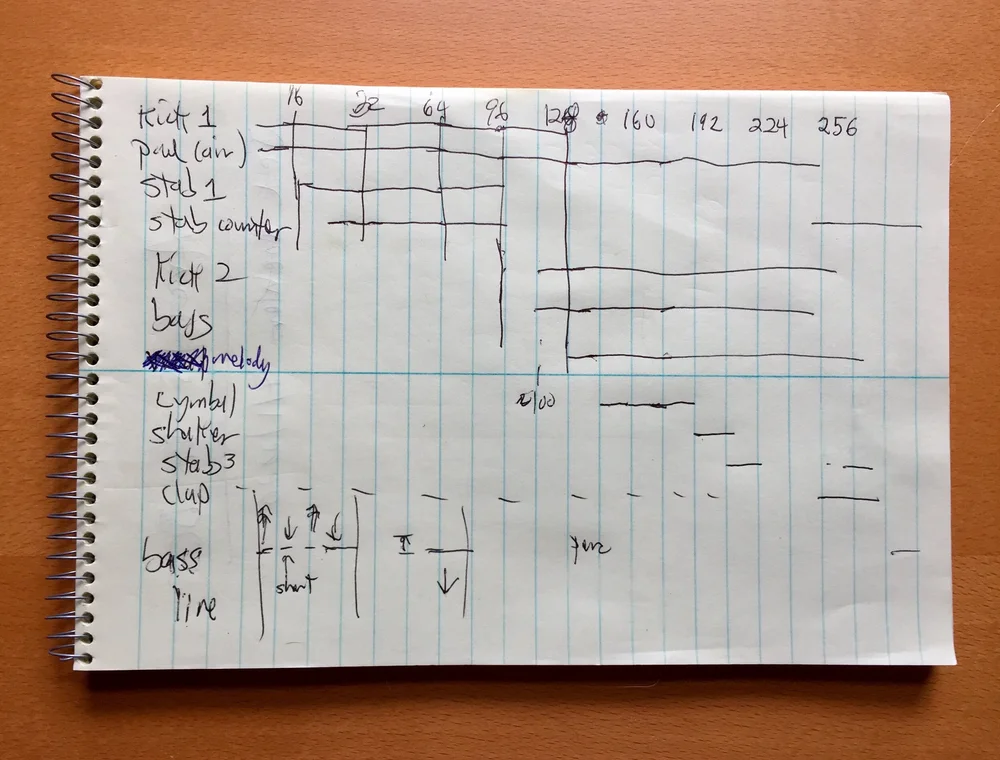 16 32 64 96 128 160 192 224 256
Kick 1
pad (air)
stab 1
stab counter
Kick 2
bass
melody
cymbal
shaker
stab 3
clap
bass
short
line